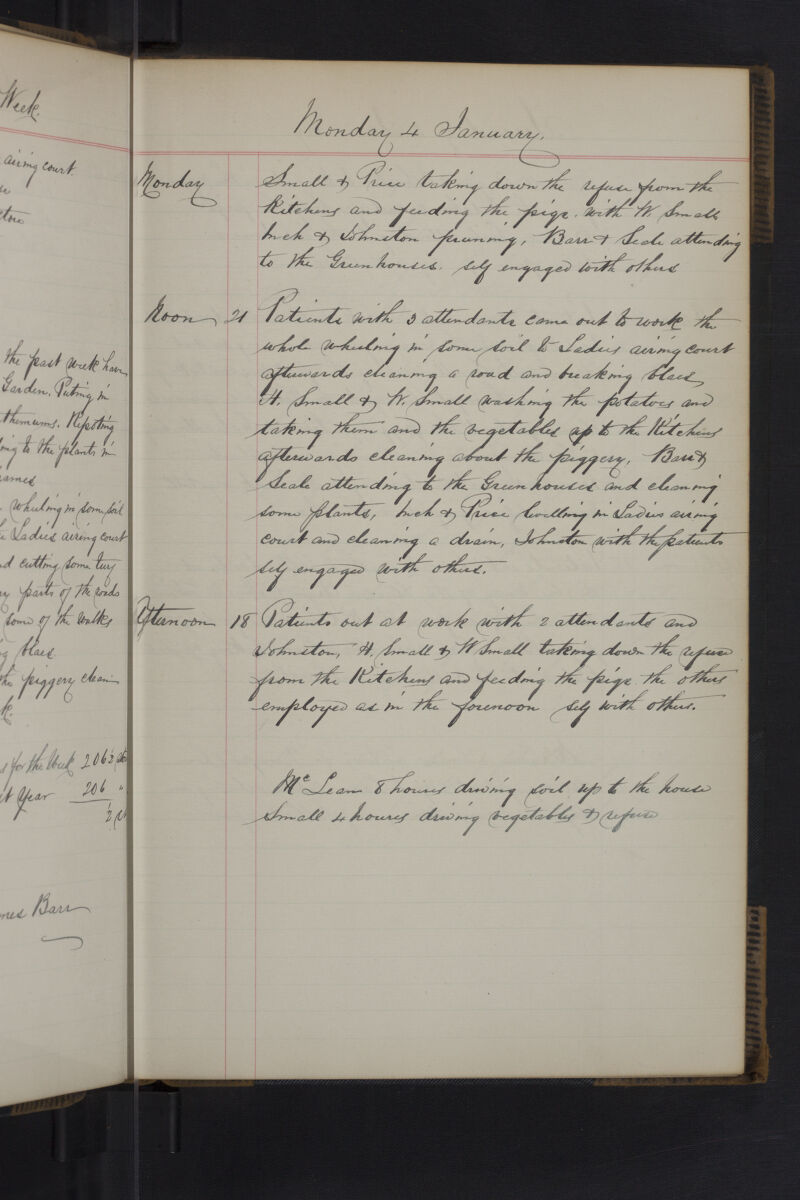 Week.
airing court
the past week have
Garden. Puting in
themums. Repoting
ing to the plants in
rames
wheeling in some soil
Ladies airing court
nd cutting some turf
parts of the roads
some of the walks
blaes
the piggery clean
k.
for the Week 206½
Year 206 "
½
mes Barr
Monday 4 January.
Monday Small & Price taking down the refuse from the
Kitchens and feeding the pigs. with W. Small
Inch & Johnston pruning, Barr & Seale attending
to the Greenhouses. self engaged with others
Noon 21 Patients with 3 attendants came out to work the
whole wheeling in some soil to Ladies airing court
afterwards cleaning a road and breaking blaes,
H. Small & W. Small washing the potatoes and
taking them and the vegetables up to the Kitchens
afterwards cleaning about the piggery, Barr &
Seale attending to the Greenhouses and cleaning
some plants, Inch & Price levelling in Ladies airing
court and cleaning a drain, Johnston with the patients
self engaged with others.
Afternoon 18 Patients out at work with 2 attendants and
Johnston, H. Small & W Small taking down the refuse
from the Kitchens and feeding the pigs. the others
employed as in the forenoon self with others.
Mc Lean 8 hours driving soil up to the house
Small 4 hours driving vegetables & refuse